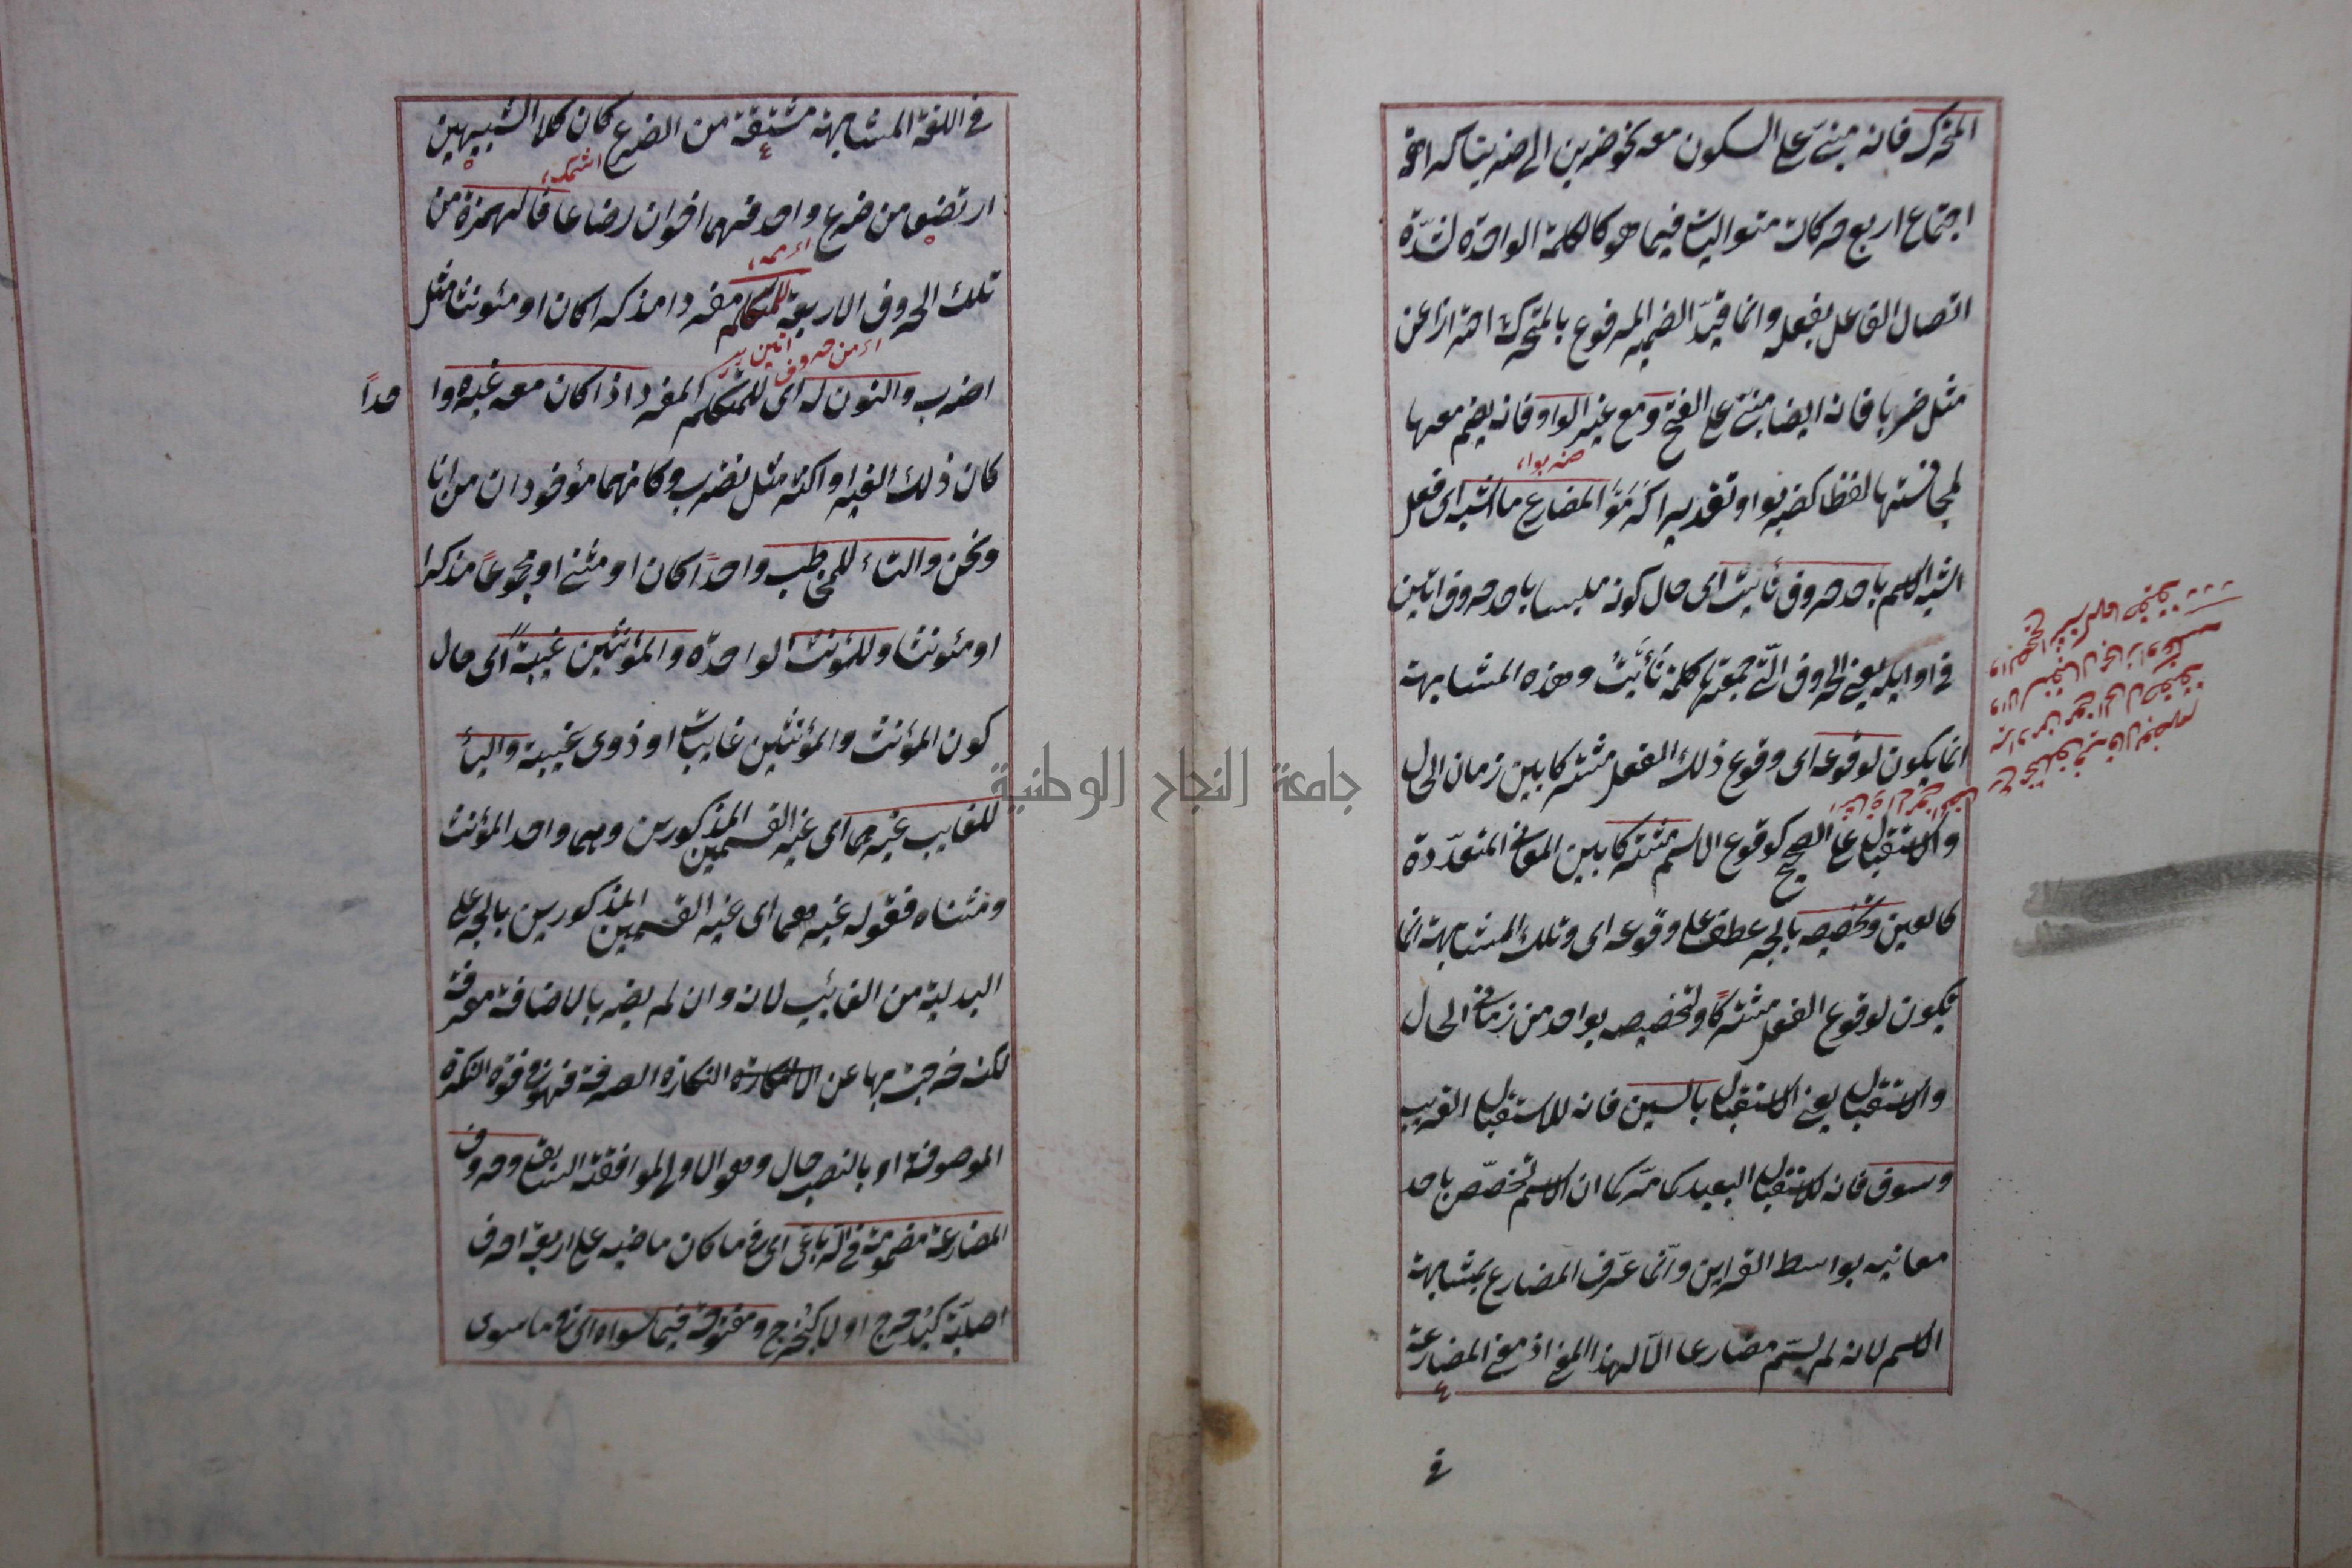 المتحرك فانه مبنىّ على السكون معه نحو ضربن الى ضربنا كراهة
اجتماع اربع حركات متواليات فيما هو كالكلمة الواحدة لشدّة
اتصال الفاعل بفعله وانما قيّد الضمير المرفوع بالمتحرك احترازا عن
مثل ضربا فانه ايضا مبنىّ على الفتح ومع غير الواو فانه يضم معها
ضربوا
لمجانستها لفظا كضربوا او تقديرا كرموا المضارع ما اشبه اى فعل
اشبه الاسم باحد حروف نأيت اى حال كونه ملبسا باحد حروف اتين
فى اوايله يعنى الحروف الّتى جمعتها كلمة نَأَيْتُ وهذه المشابهة
انما يكون لوقوعه اى وقوع ذلك الفعل مشتركا بين زمان الحال
والاستقبال على الصحيح كوقوع الاسم مشتركا بين المعانى المتعدّدة
كالعين وتخصيصه بالجر عطف على وقوعه اى وتلك المشابهة انما
يكون لوقوع الفعل مشتركاً ولتخصيصه بواحد من زمانى الحال
والاستقبال يعنى الاستقبال بالسين فانه للاستقبال القريب
وسوف فانه للاستقبال البعيد كما مرّ كما ان الاسم تخصّص باحد
معانيه بواسط القراين وانّما عرّف المضارع بمشابهة
الاسم لانه لم يسمّ مضارعا الّا لهذا المعنى اذ معنى المضارعة
فى
فى اللغة المشابهة مشتقة من الضرع كان كلا الشبيهين
ارتضعا من ضرع واحد فهما اخوان رضاعا فالهمزة من
تلك الحروف الاربعة للمتكلم مفردا مذكرا كان او مئونثا مثل
اى من حروف اتين
اضرب والنون له اى للمتكلم المفرد اذا كان معه غيره وا
حداً
كان ذلك الغير او اكثر مثل نضرب وكانهما مأخوذان من انا
ونحن والتاء للمخاطب واحداً كان او مثنى او مجموعاً مذكرا
او مئونثا وللمؤنث الواحدة والمؤنثين غيبةً اى حال
كون المؤنث والمؤنثين غايبات او ذوى غيبة والياء
للغايب غيرهما اى غير القسمين المذكورين وهما واحد المؤنث
ومثناه فقوله غيرهما اى غير القسمين المذكورين بالجر على
البدلية من الغائب لانه وان لم يضر بالاضافة معرفة
لكنه خرجت بها عن النكارة الصرفة فهو فى قوة النكرة
الموصوفة او بالنصب حال وهو الاولى لموافقة السابق وحروف
المضارعة مضمومة فى الرباعى اى فى ما كان ماضيه على اربعة احرف
اصليّة كيُدحرج او لا كيُخرج ومفتوحة فيما سواه اى فى ما سوى
جامعة النجاح الوطنية